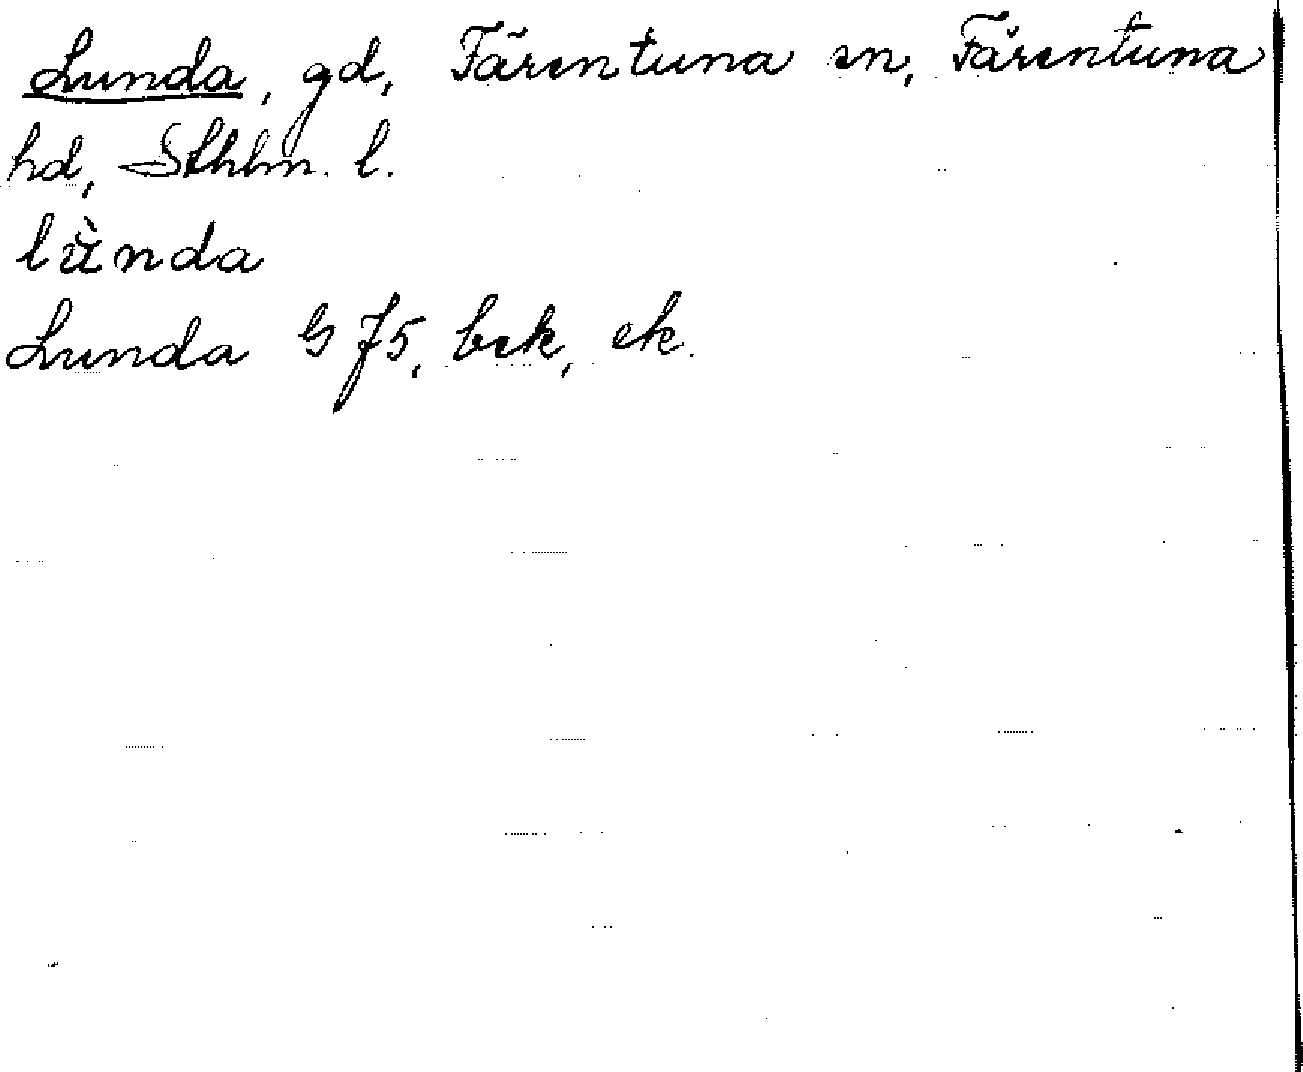 Lunda, gd, Färentuna sn, Färentuna
hd, Sthlm. l.
lùnda
Lunda G 75, bek, ek.